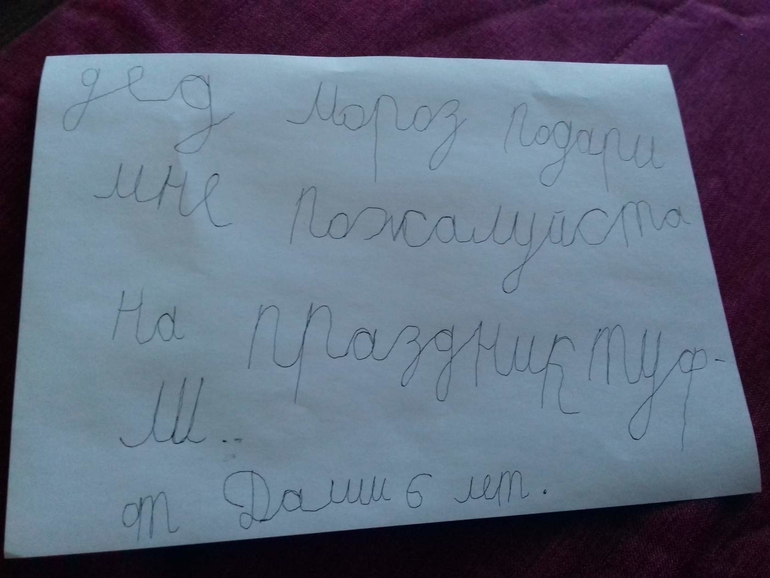 дед Мороз подари
мне пожалуйста
на праздник туф-
ли..
от Даши 6 лет.